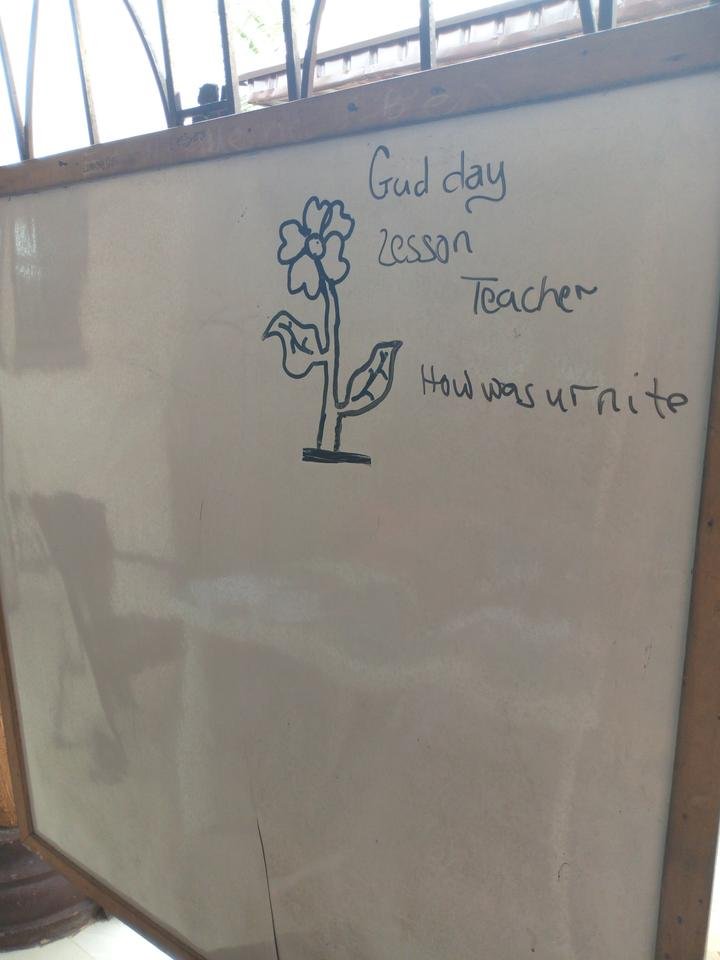 Gud day
Lesson
Teacher
How was ur nite